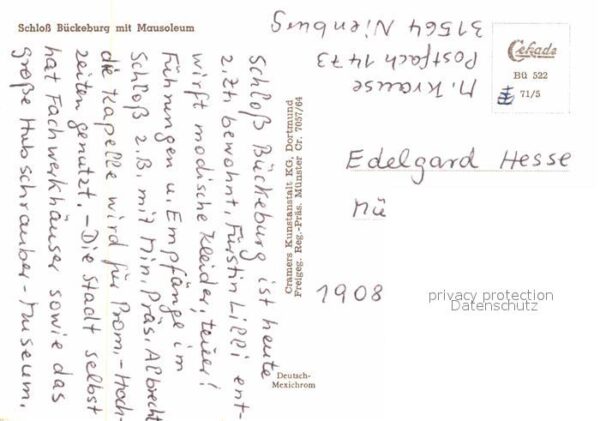 Schloß Bückeburg mit Mausoleum
Schloß Bückeburg ist heute
z.Zt. bewohnt. Fürstin Lilli ent-
wirft modische Kleider, teuer!
Führungen u. Empfänge im
Schloß z.B. mit Min. Präs. Albrecht
die Kapelle wird für Prom.-Hoch-
zeiten genutzt. - Die Stadt selbst
hat Fachwerkhäuser sowie das
große Hubschrauber-Museum.
Cramers Kunstanstalt KG, Dortmund
Freigeg. Reg.-Präs. Münster Cr. 7057/64
Deutsch-
Mexichrom
M. Krause
Postfach 1473
31564 Nienburg
Cekade
BÜ 522
71/5
Edelgard Hesse
Mü
1908
privacy protection
Datenschutz